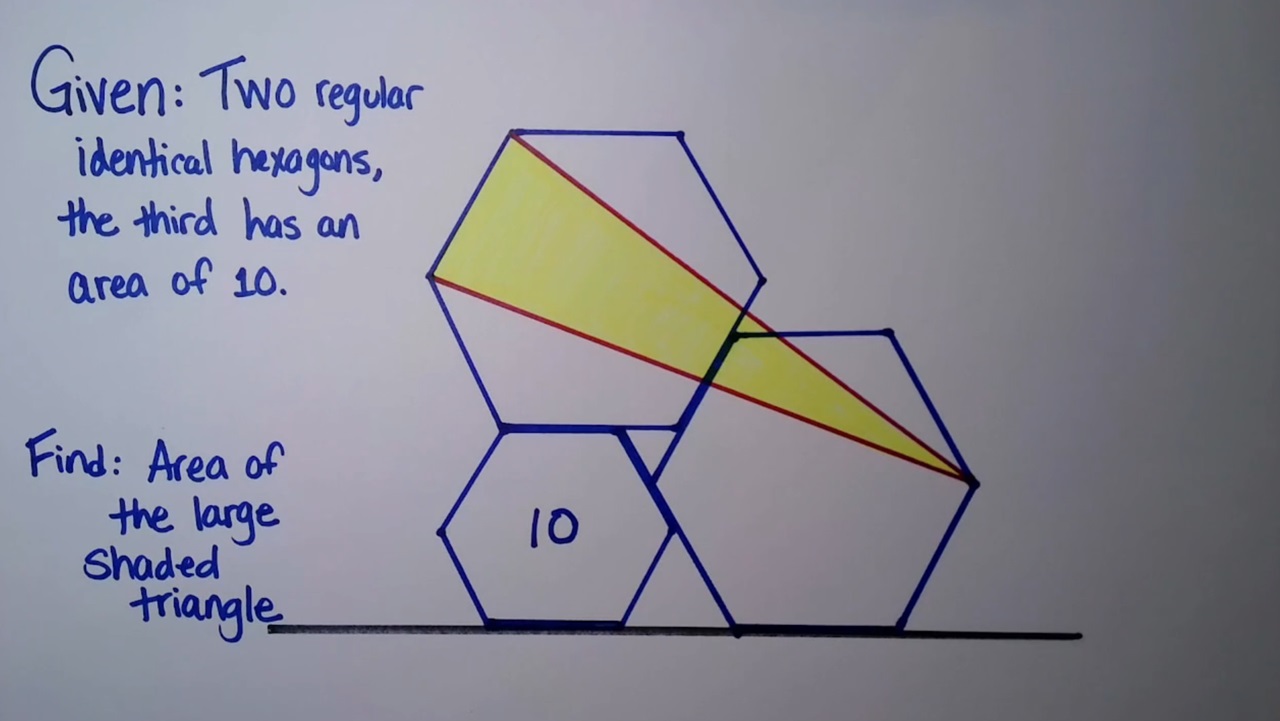 Given: Two regular
identical hexagons,
the third has an
area of 10.
Find: Area of
the large
shaded
triangle
10